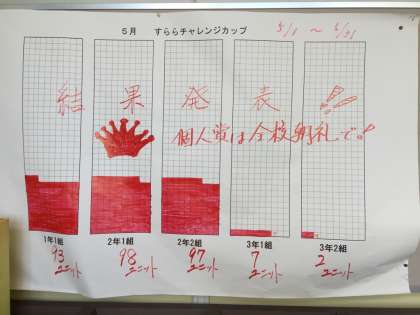 5月　すららチャレンジカップ　5/1 ～ 5/31
結果発表!!
個人賞は全校朝礼で!
1年1組　2年1組　2年2組　3年1組　3年2組
93ユニット　98ユニット　97ユニット　7ユニット　2ユニット